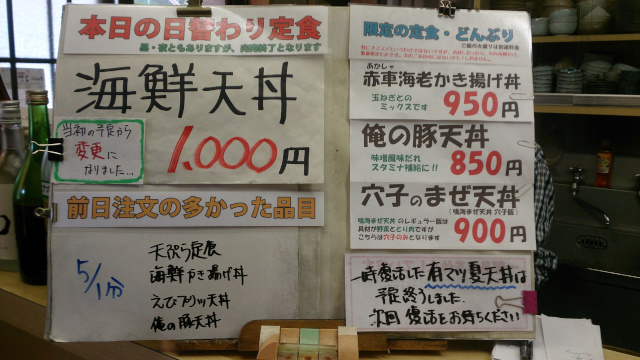 本日の日替わり定食
昼・夜ともありますが、完売終了となります
海鮮天丼
当初の予定から
変更に
なりました…
1,000円
前日注文の多かった品目
5/1分
天ぷら定食
海鮮かき揚げ丼
えびブリッ天丼
俺の豚天丼
限定の定食・どんぶり
ご飯の大盛りは別途料金
あかしゃ
赤車海老かき揚げ丼
玉ねぎとの
ミックスです
950円
俺の豚天丼
味噌風味だれ
スタミナ補給に!!
850円
穴子のまぜ天丼
(鳴海まぜ天丼 穴子飯)
鳴海まぜ天丼 のレギュラー版は
具材が野菜ととり肉ですが
こちらは穴子のみとなります
900円
一時復活した有マヅ夏天丼は
予定終うしました
次回復活をお待ちください